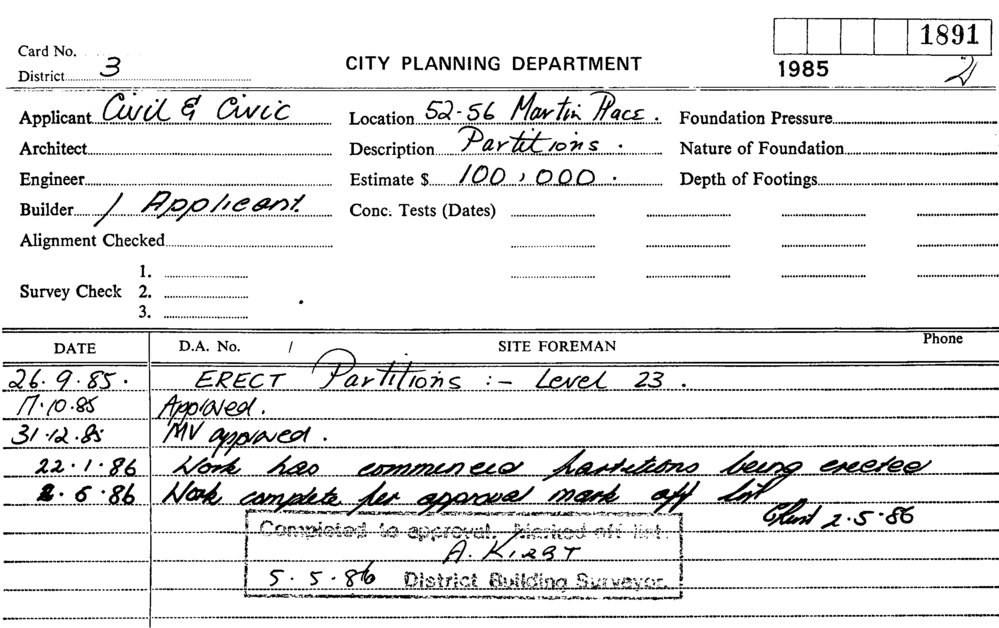 1891
Card No.
CITY PLANNING DEPARTMENT
1985
2
District 3
Applicant Civil & Civic
Location 52-56 Martin Place.
Foundation Pressure
Architect
Description Partitions.
Nature of Foundation
Engineer
Estimate $ 100,000.
Depth of Footings
Builder / Applicant
Conc. Tests (Dates)
Alignment Checked
1.
Survey Check 2.
3.
DATE D.A. No. / SITE FOREMAN Phone
26.9.85. ERECT Partitions :- Level 23.
17.10.85 Approved.
31.12.85 MV approved.
22.1.86 Work has commenced partitions being erected
2.5.86 Work complete per approval mark off list
2.5.86
Completed to approval. Marked off list.
5.5.86 District Building Surveyor.